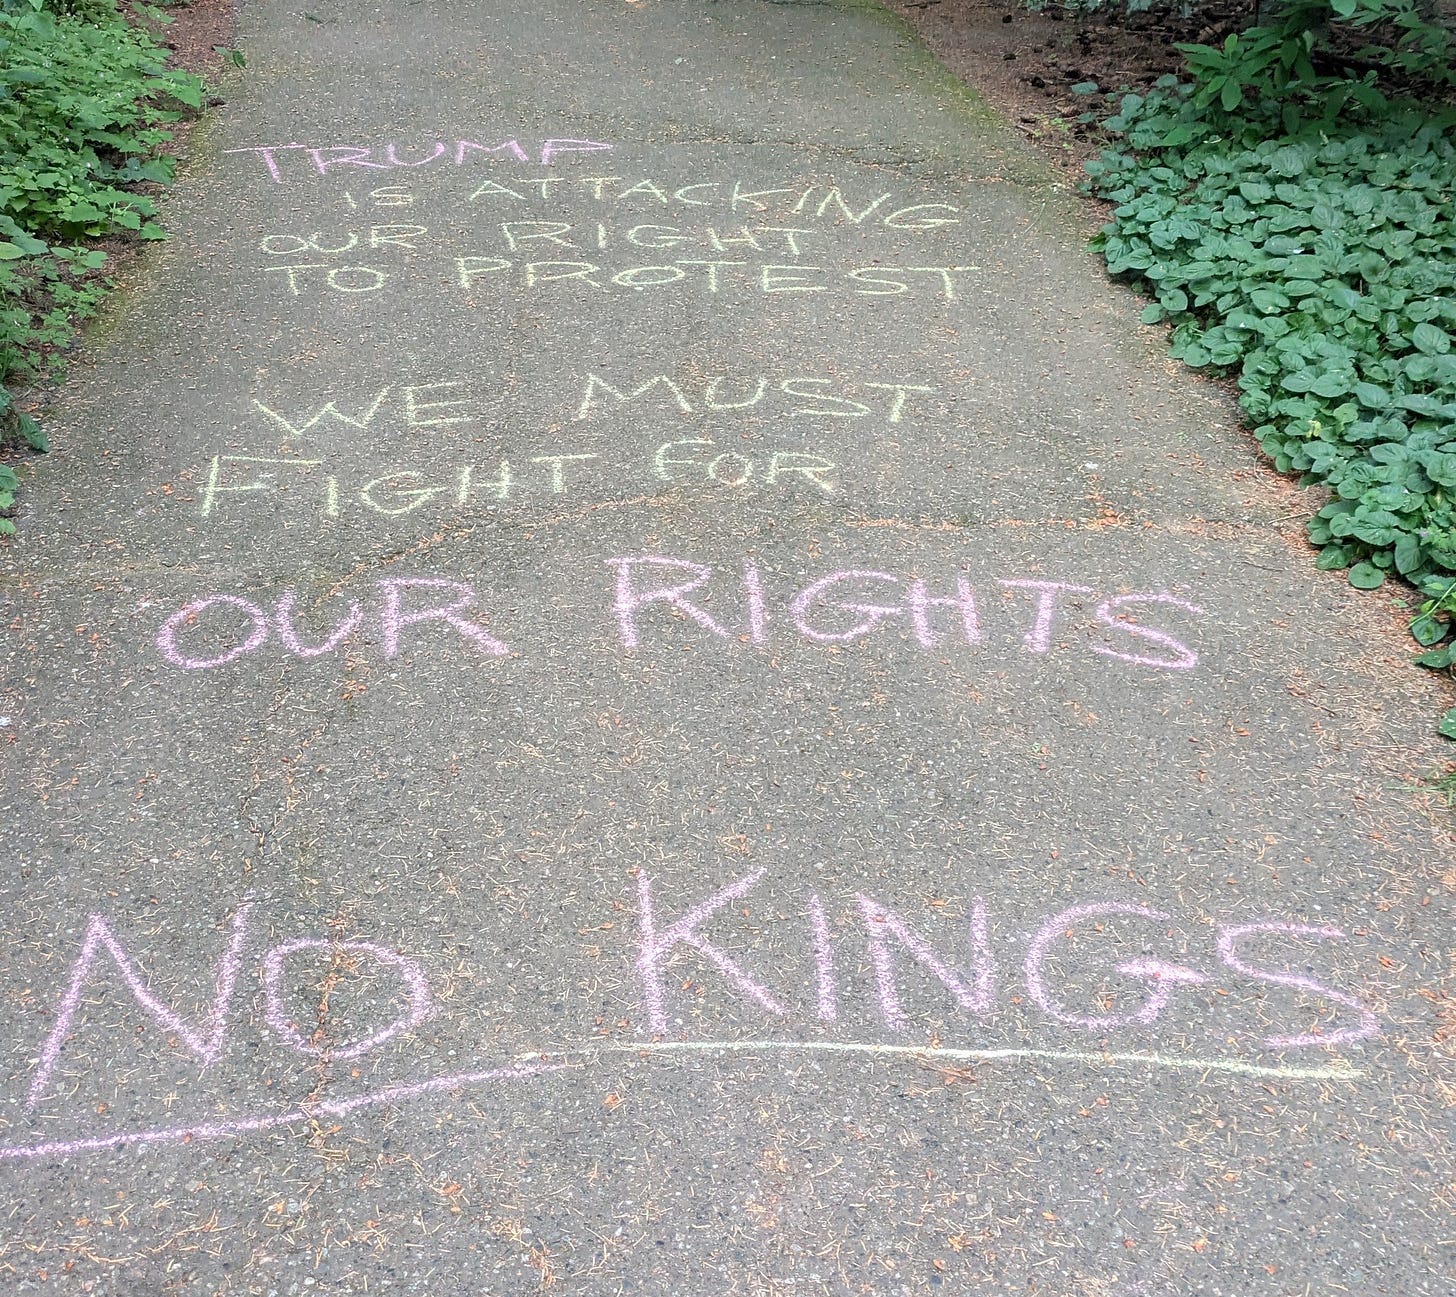 TRUMP
IS ATTACKING
OUR RIGHT
TO PROTEST
WE MUST
FIGHT FOR
OUR RIGHTS
NO KINGS